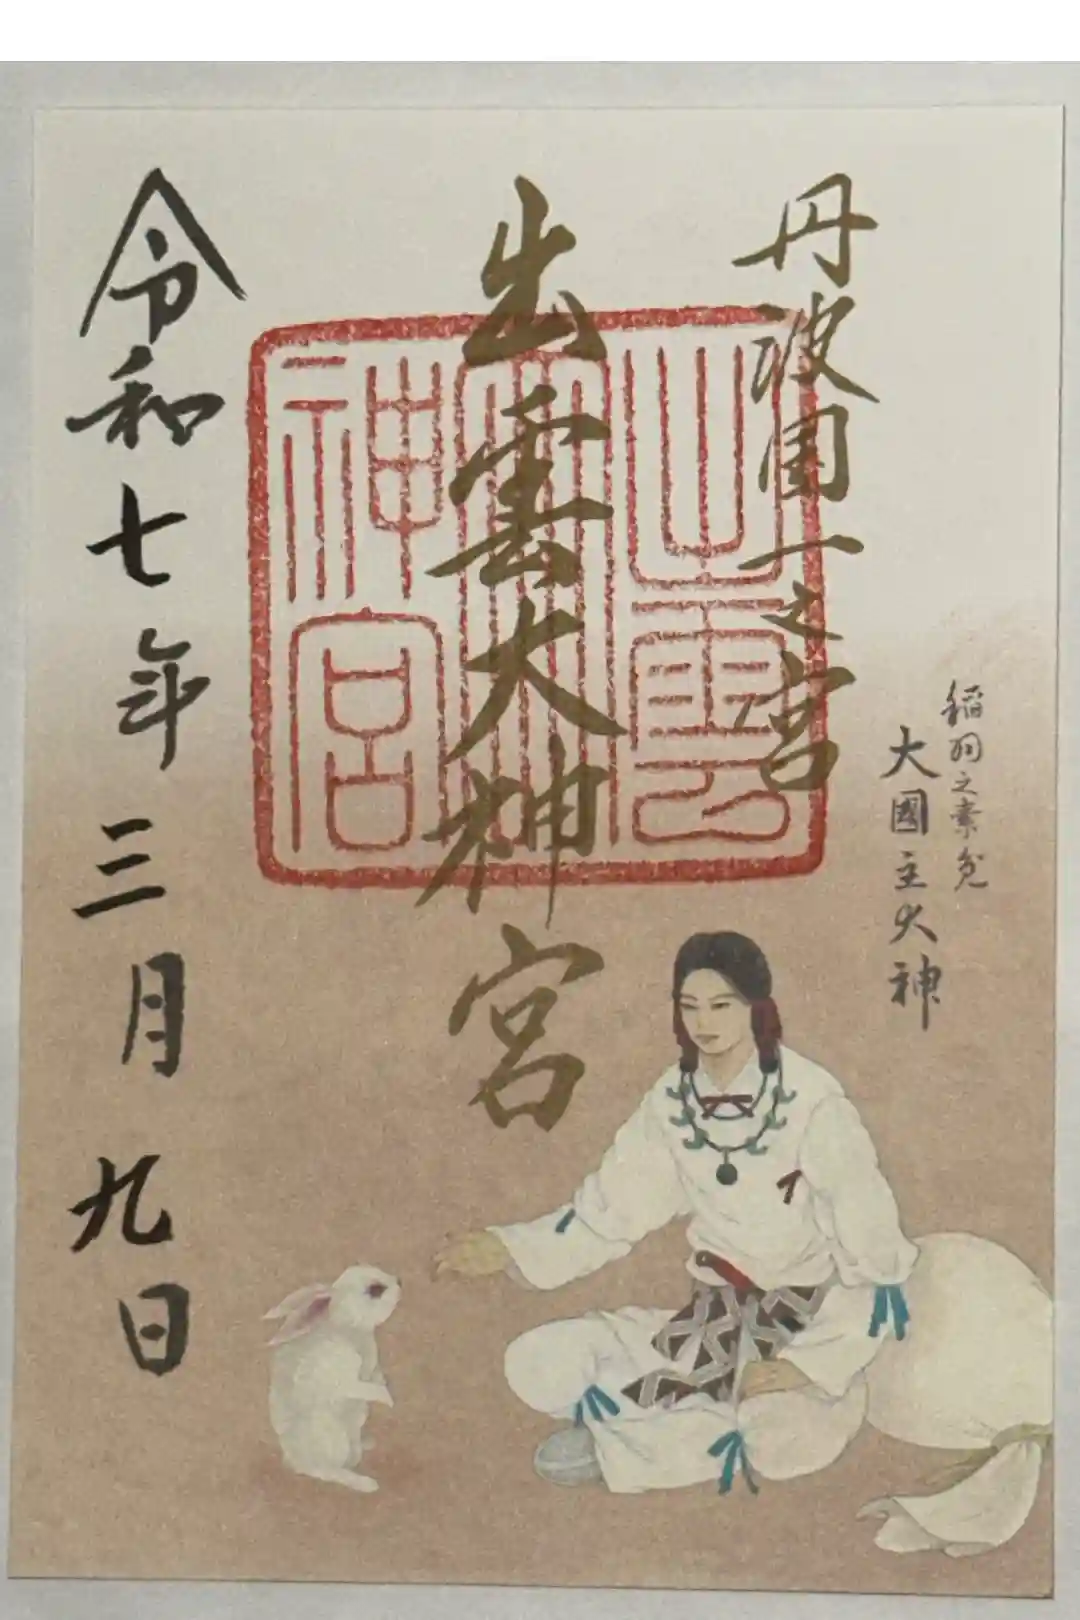 稲羽之素兔
大國主大神
丹波國一之宮
出雲大神宮
出雲
大神宮
令和七年三月九日